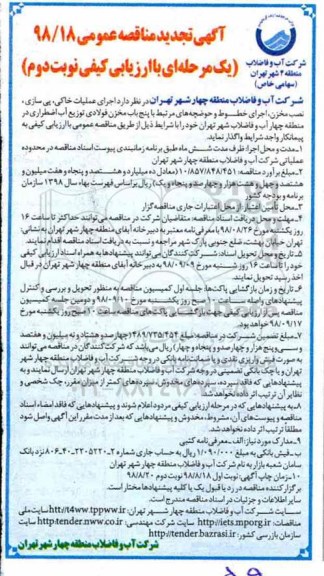 آگهی تجدید مناقصه عمومی ۹۸/۱۸
(یک مرحله‌ای با ارزیابی کیفی نوبت دوم)
شرکت آب و فاضلاب
منطقه ۴ شهر تهران
(سهامی خاص)
شرکت آب و فاضلاب منطقه چهار شهر تهران در نظر دارد اجرای عملیات خاکی، پی سازی،
نصب مخزن، اجرای خطوط و حوضچه‌های مرتبط با پنج باب مخزن فولادی توزیع آب اضطراری در
منطقه چهار آب و فاضلاب شهر تهران خود را با شرایط ذیل از طریق مناقصه عمومی با ارزیابی کیفی به
پیمانکار واجد شرایط واگذار نماید.
۱-مدت و محل اجرا: ظرف مدت شش ماه طبق برنامه زمانبندی پیوست اسناد مناقصه در محدوده
عملیاتی شرکت آب و فاضلاب منطقه چهار شهر تهران
۲-مبلغ برآورد مناقصه: ۱۰/۸۵۷/۸۴۸/۴۵۱ (معادل ده میلیارد و هشتصد و پنجاه و هفت میلیون و
هشتصد و چهل و هشت هزار و چهارصد و پنجاه و یک) ریال براساس فهرست بهاء سال ۱۳۹۸ سازمان
برنامه و بودجه کشور
۳-محل تامین اعتبار: از محل اعتبارات جاری مناقصه گزار
۴-مهلت و محل دریافت اسناد مناقصه: متقاضیان شرکت در مناقصه می‌توانند حداکثر تا ساعت ۱۶
روز یکشنبه مورخ ۹۸/۰۸/۲۶ با معرفی نامه معتبر به دبیرخانه آبفای منطقه چهار شهر تهران به نشانی:
تهران خیابان بهشت، ضلع جنوبی پارک شهر مراجعه و نسبت به دریافت اسناد مناقصه اقدام نمایند.
۵-تاریخ و محل تحویل اسناد: شرکت کنندگان می‌توانند پیشنهادها به همراه اسناد ارزیابی کیفی
خود را تا ساعت ۱۶ روز شنبه مورخ ۹۸/۰۹/۰۹ به دبیرخانه آبفای منطقه چهار شهر تهران در قبال
اخذ رسید تحویل نمایند.
۶-تاریخ و زمان بازگشایی پاکت‌ها: جلسه اول کمیسیون مناقصه به منظور تحویل و بررسی و کنترل
پیشنهادهای واصله ساعت ۱۰ صبح روز یکشنبه مورخ ۹۸/۰۹/۱۰ و دومین جلسه کمیسیون
مناقصه برای ارزیابی کیفی جهت بازگشایی پاکت‌های مناقصه ساعت ۱۰ صبح روز یکشنبه مورخ
۹۸/۰۹/۱۷ خواهد بود.
۷-مبلغ تضمین شرکت در مناقصه: مبلغ ۴۸۹/۷۳۵/۴۵۴ (چهارصد و هشتاد و نه میلیون و هفتصد
و سی و پنج هزار و چهارصد و پنجاه و چهار) ریال می‌باشد که شرکت کنندگان در مناقصه می‌توانند
به صورت فیش واریزی نقدی و یا ضمانتنامه بانکی در وجه شرکت آب و فاضلاب منطقه چهار شهر
تهران و یا چک بانکی تضمینی در وجه شرکت آب و فاضلاب منطقه چهار شهر تهران ارسال نمایند و به
پیشنهادهایی که فاقد سپرده، سپرده‌های مخدوش، سپرده‌های کمتر از میزان مقرر، چک شخصی و
نظایر آن ترتیب اثر داده نخواهد شد.
۸-به پیشنهادهایی که در مرحله ارزیابی کیفی مردود اعلام شوند و پیشنهادهایی که فاقد امضاء اسناد
مناقصه و پیوست‌های آن، مشروط، مخدوش و پیشنهادهایی که بعد از مدت مقرر این آگهی واصل شود
مطلقا ترتیب اثر داده نخواهد شد.
۹-مدارک مورد نیاز: الف-معرفی‌نامه کتبی
ب-فیش بانکی به مبلغ ۱/۰۹۰/۰۰۰ ریال به حساب جاری شماره
سامان شعبه بازار به نام شرکت آب و فاضلاب منطقه چهار شهر تهران
۱۰-زمان چاپ آگهی: نوبت اول ۹۸/۸/۱۸ نوبت دوم ۹۸/۸/۲۰
برگزار کننده مناقصه در رد یا قبول یک یا کلیه پیشنهادها مختار است.
سایر اطلاعات و جزئیات در اسناد مناقصه مندرج است.
سایت شرکت آب و فاضلاب منطقه چهار شهر تهران: htt://t4ww.tppww.ir سایت ملی
مناقصات: http://iets.mporg.ir سایت شرکت مهندسی: http:tender.nww.co.ir سایت
سازمان بازرسی کشور: http://tender.bazrasi.ir
شرکت آب و فاضلاب منطقه چهار شهر تهران